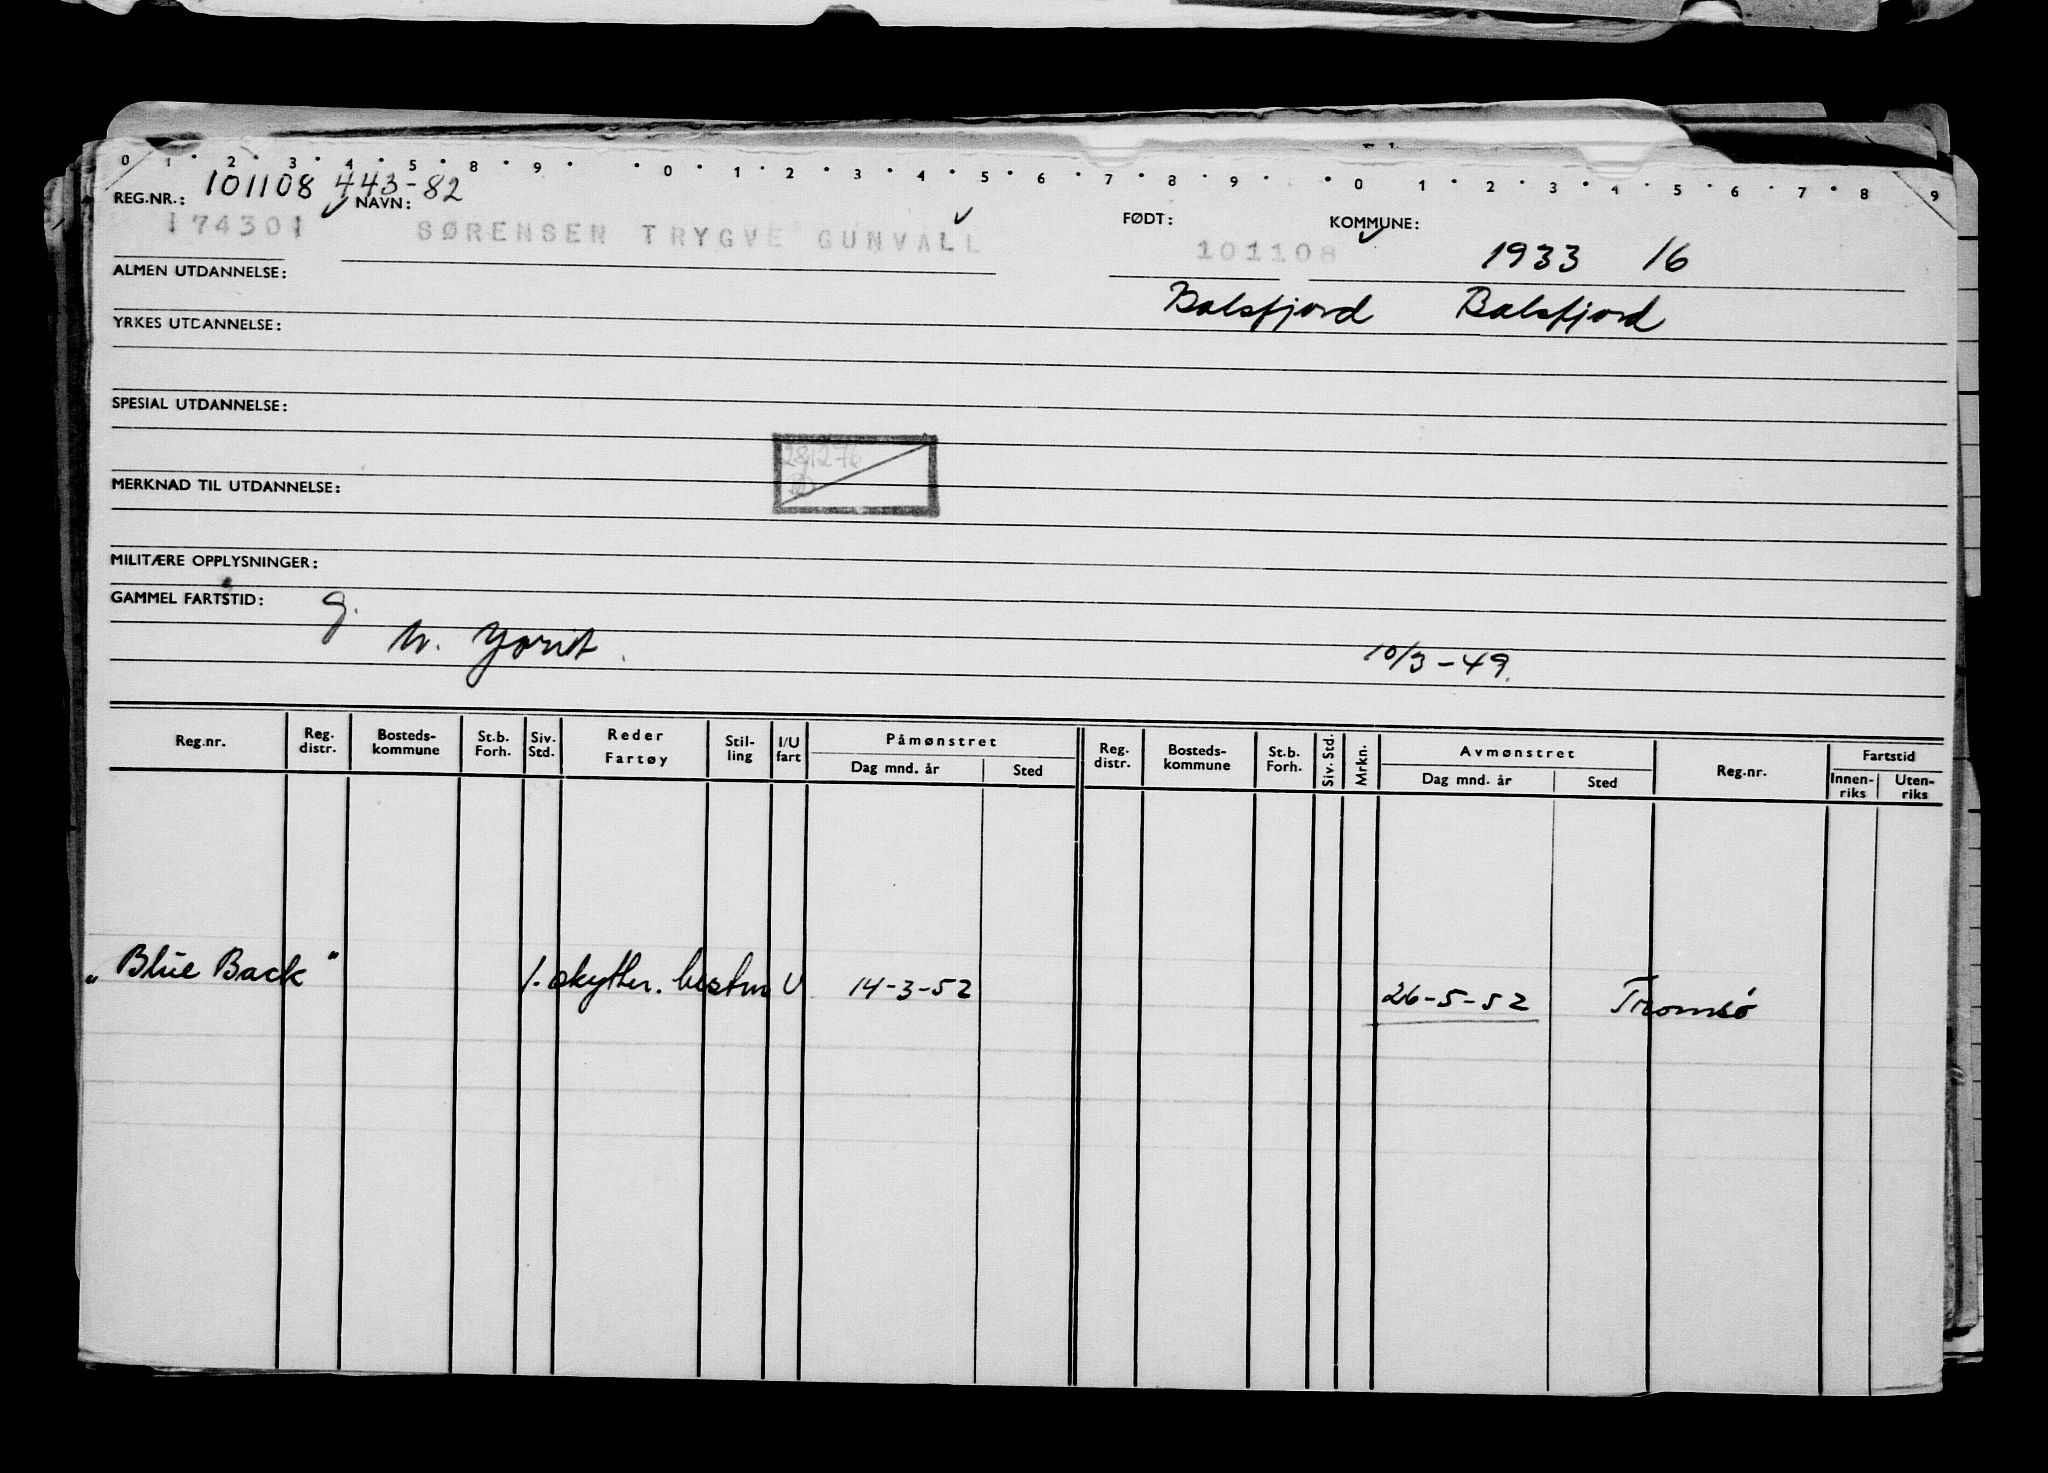 0 1 2 3 4 5 8 9 0 1 2 3 4 5 6 7 8 9 0 1 2 3 4 5 6 7 8 9
REG.NR.: 101108 443-82 NAVN: FØDT: KOMMUNE:
174301 SØRENSEN TRYGVE GUNVALL 101108 1933 16
ALMEN UTDANNELSE: Balsfjord Balsfjord
YRKES UTDANNELSE:
SPESIAL UTDANNELSE:
281276
MERKNAD TIL UTDANNELSE:
MILITÆRE OPPLYSNINGER:
GAMMEL FARTSTID: g.
10/3-49.
Reg.nr. Reg. distr. Bosteds-kommune St.b. Forh. Siv. Std. Reder Fartøy Stil-ling I/U fart Påmønstret Dag mnd. år Sted Reg. distr. Bosteds-kommune St.b. Forh. Siv. Std. Mrkn. Avmønstret Dag mnd. år Sted Reg.nr. Fartstid Innen-riks Uten-riks
„Blue Back" 1. skytter. bestm U 14-3-52 26-5-52 Tromsø